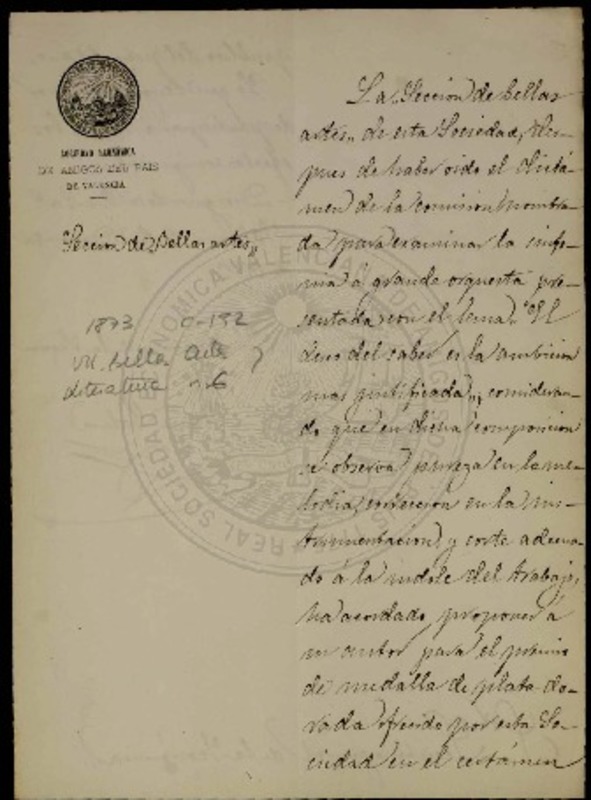 SOCIEDAD ECONÓMICA
DE AMIGOS DEL PAIS
DE VALENCIA
Seccion de Bellas artes,,
1873 C-192
VII. Bellas Artes y
Literatura n.6
REAL SOCIEDAD ECONOMICA VALENCIANA DE AMIGOS DEL PAIS
La Seccion de bellas
artes,, de esta Sociedad, des-
pues de haber oido el dictá-
men de la comision nombra-
da para examinar la sinfo-
nia á grande orquesta pre-
sentada con el lema "El
deseo del saber es la ambicion
mas justificada,, consideran-
do que en dicha composicion
se observa pureza en la me-
lodia, correccion en la ins-
trumentacion, y corte adecua-
do á la indole del trabajo,
ha acordado proponer á
su autor para el premio
de medalla de plata do-
rada ofrecido por esta So-
ciedad en el certámen